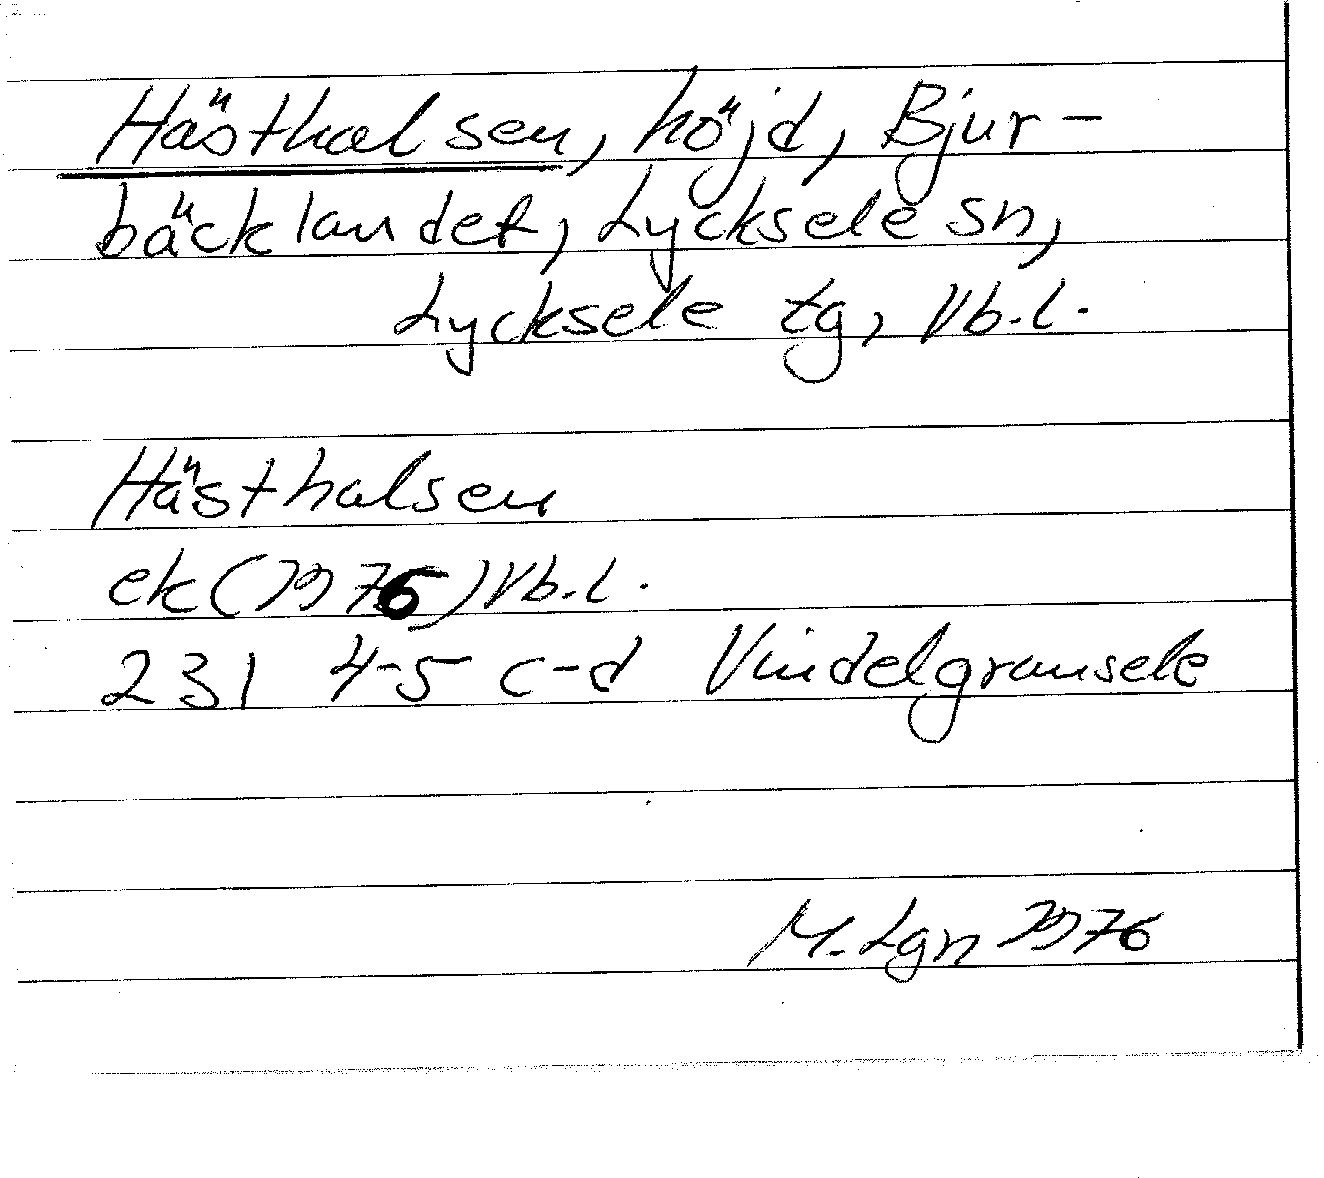 Hästhalsen, höjd, Bjur-
bäcklandet, Lycksele sn,
Lycksele tg, Vb.l.
Hästhalsen
ek (1976) Vb.l.
231 4-5 c-d Vindelgransele
M. Lgn 1976